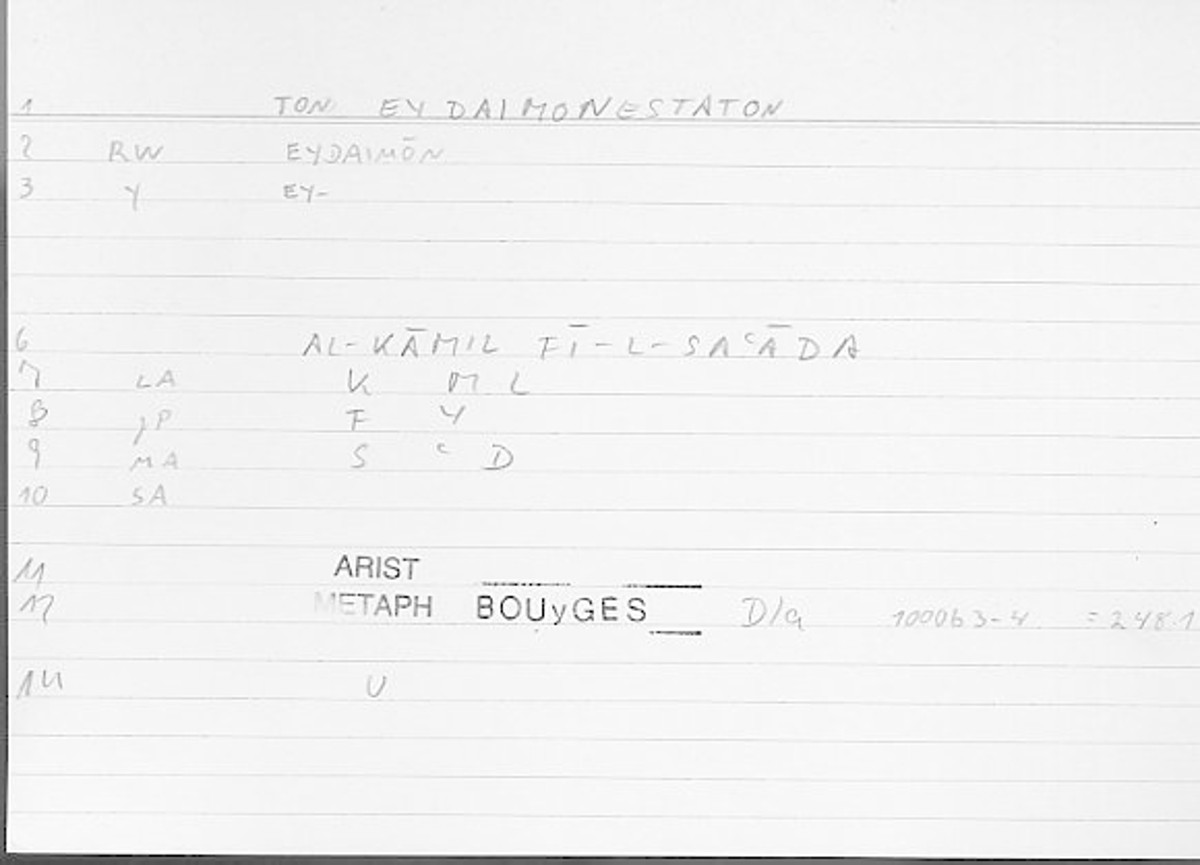 1 TON EYDAIMONESTATON
2 RW EYDAIMŌN
3 Y EY-
6 AL-KĀMIL FĪ-L-SAʿĀDA
7 LA K M L
8 JP F Y
9 MA S ʿ D
10 SA
11 ARIST
12 METAPH BOUyGES D/a 1000b3-4 =248.1
14 U